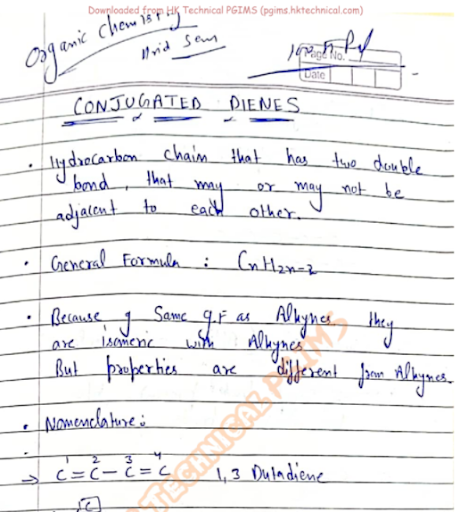 Downloaded from HK Technical PGIMS (pgims.hktechnical.com)
Organic Chemistry
Mid Sem
Page No.
Date
CONJUGATED DIENES
• Hydrocarbon chain that has two double
bond, that may or may not be
adjacent to each other.
• General Formula : CnH2n-2
• Because of Same g.F as Alkynes they
are isomeric with Alkynes
But properties are different from Alkynes.
• Nomenclature :
1 2 3 4
→ C = C - C = C 1, 3 Butadiene
C
TECHNICAL PGIMS